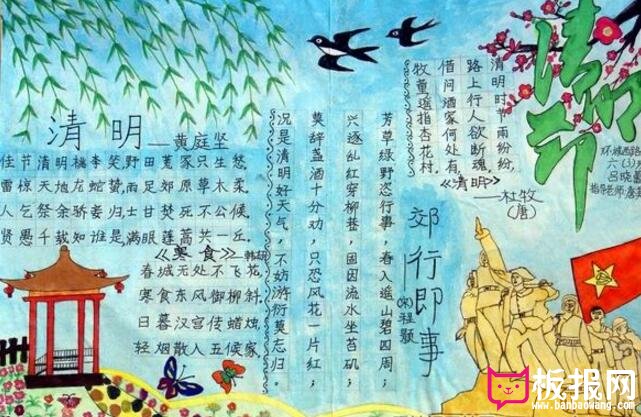 清明节
清明
—黄庭坚
佳节清明桃李笑,野田荒冢只生愁。
雷惊天地龙蛇蛰,雨足郊原草木柔。
人乞祭余骄妾归士甘焚死不公候。
贤愚千载知谁是,满眼蓬蒿共一丘。
《寒食》—韩翃
春城无处不飞花,
寒食东风御柳斜.
日暮汉宫传蜡烛
轻烟散入五候家
清明时节雨纷纷,
路上行人欲断魂。
借问酒家何处有
牧童遥指杏花村。
《清明》
—杜牧
(唐)
郊行即事
(宋)程颢
芳草绿野恣行事,春入遥山碧四周;
兴逐乱红穿柳巷,困因流水坐苔矶;
莫辞盏酒十分劝,只恐风花一片红;
况是清明好天气,不妨游衍莫忘归。
环城西路
六(3)
吕晓
指导老师:
板报网
www.banbaowang.com